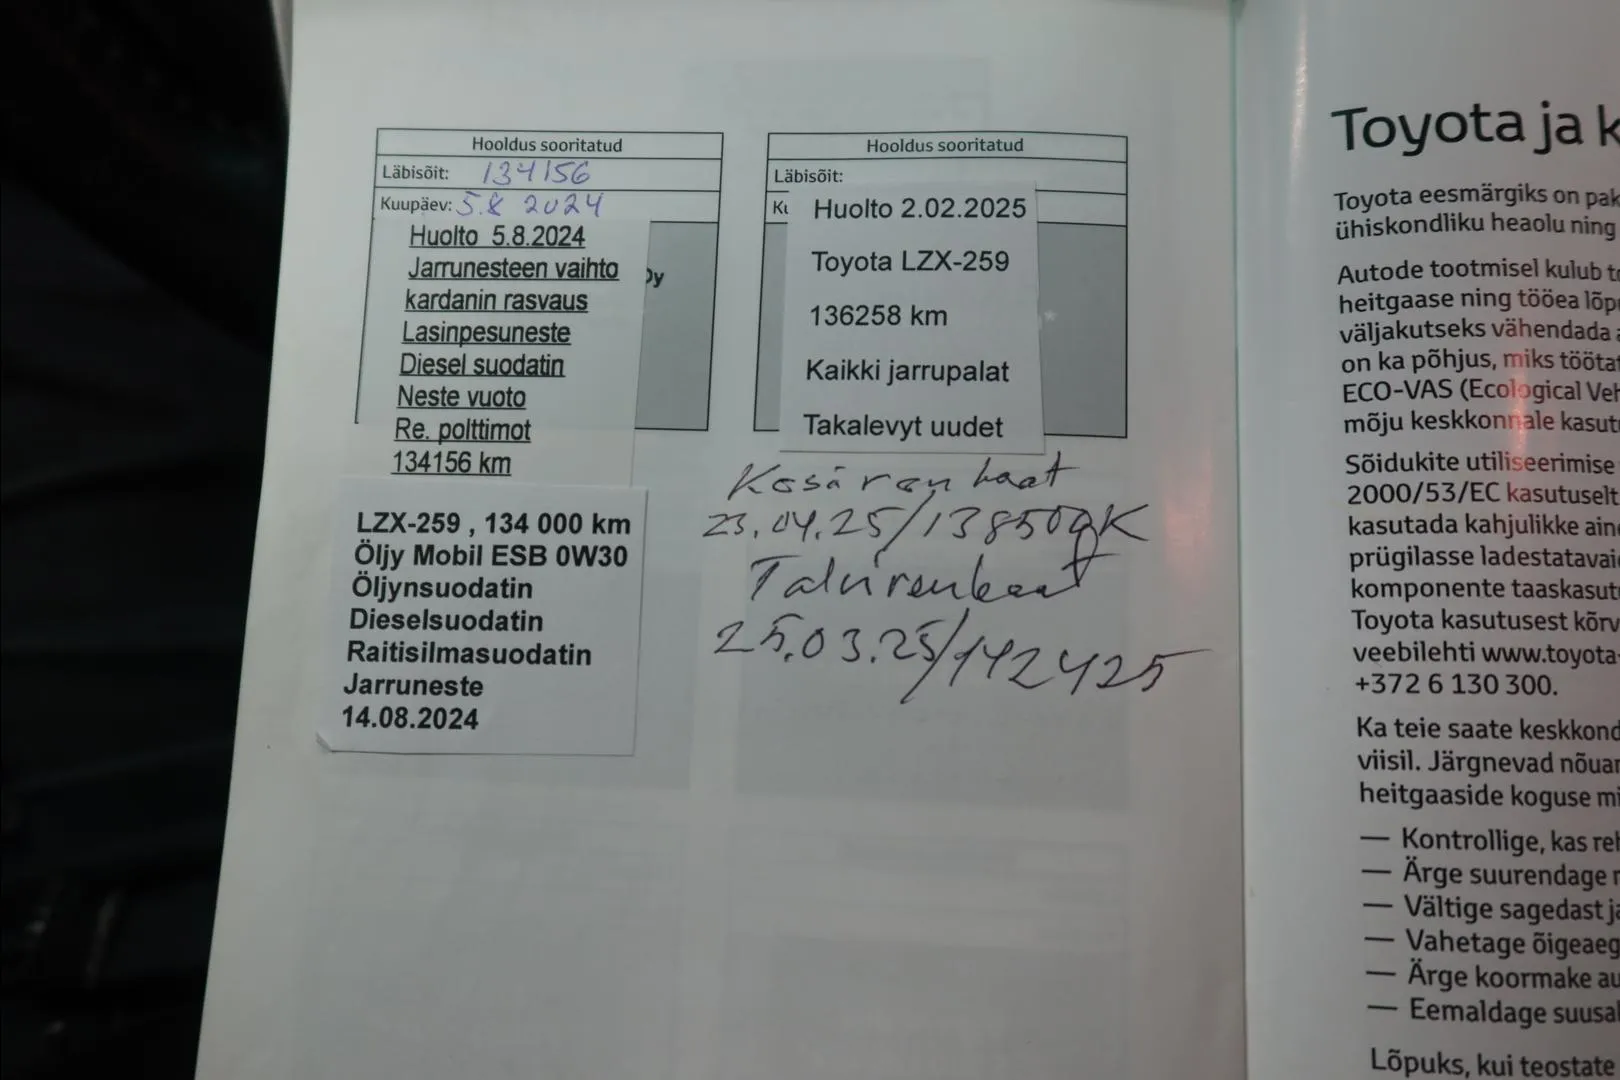 Hooldus sooritatud
Läbisõit: 134156
Kuupäev: 5.8 2024
Huolto 5.8.2024
Jarrunesteen vaihto
kardanin rasvaus
Lasinpesuneste
Diesel suodatin
Neste vuoto
Re. polttimot
134156 km
Oy
LZX-259 , 134 000 km
Öljy Mobil ESB 0W30
Öljynsuodatin
Dieselsuodatin
Raitisilmasuodatin
Jarruneste
14.08.2024
Hooldus sooritatud
Läbisõit:
Huolto 2.02.2025
Toyota LZX-259
136258 km
Kaikki jarrupalat
Takalevyt uudet
Kesärenkaat
23.04.25/138509K
Talvirenkaat
25.03.25/142425
Toyota ja k
Toyota eesmärgiks on pak
ühiskondliku heaolu ning
Autode tootmisel kulub
heitgaase ning tööea lõp
väljakutseks vähendada
on ka põhjus, miks töötat
ECO-VAS (Ecological Veh
mõju keskkonnale kasut
Sõidukite utiliseerimise
2000/53/EC kasutuselt
kasutada kahjulikke aine
prügilasse ladestatavai
komponente taaskasut
Toyota kasutusest kõrv
veebilehti www.toyota-
+372 6 130 300.
Ka teie saate keskkond
viisil. Järgnevad nõuan
heitgaaside koguse mi
— Kontrollige, kas reh
— Ärge suurendage
— Vältige sagedast ja
— Vahetage õigeaeg
— Ärge koormake au
— Eemaldage suusa
Lõpuks, kui teostate